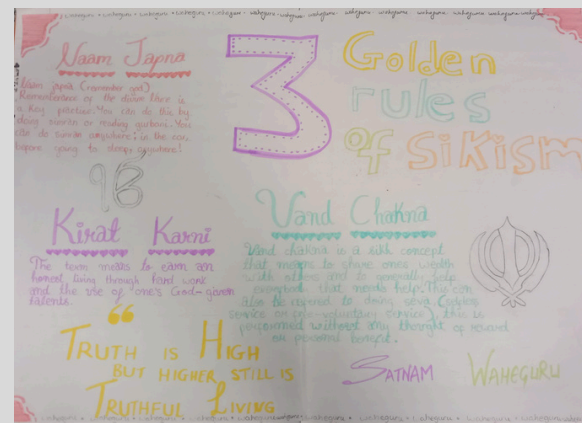 waheguru • waheguru • waheguru • waheguru • waheguru • waheguru • waheguru
3 Golden
rules
of Sikism
Naam Japna
Naam japna (remember god)
Remembrance of the divine Name is
a key practice. You can do this by
doing simran or reading gurbani. You
can do simran anywhere! in the car,
before going to sleep, anywhere!
ੴ
Kirat Karni
The term means to earn an
honest living through hard work
and the use of one's God-given
talents.
Vand Chakna
Vand chakna is a sikh concept
that means to share ones wealth
with others and to generally help
that needs help. This can
also be referred to doing seva (selfless
service or voluntary service), this is
performed without any thought of reward
or personal benefit.
“
TRUTH IS HIGH
BUT HIGHER STILL IS
TRUTHFUL LIVING
SATNAM WAHEGURU
waheguru • waheguru • waheguru • waheguru • waheguru • waheguru • waheguru